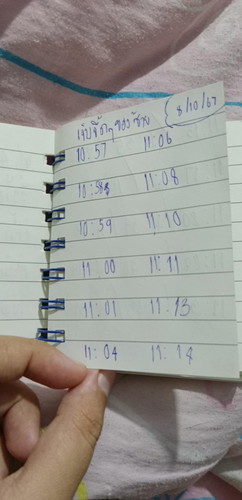 8/10/67
เจ็บจี๊ดๆ ของซ้าย
10:57 11:06
10:58 11:08
10:59 11:10
11:00 11:11
11:01 11:13
11:04 11:14